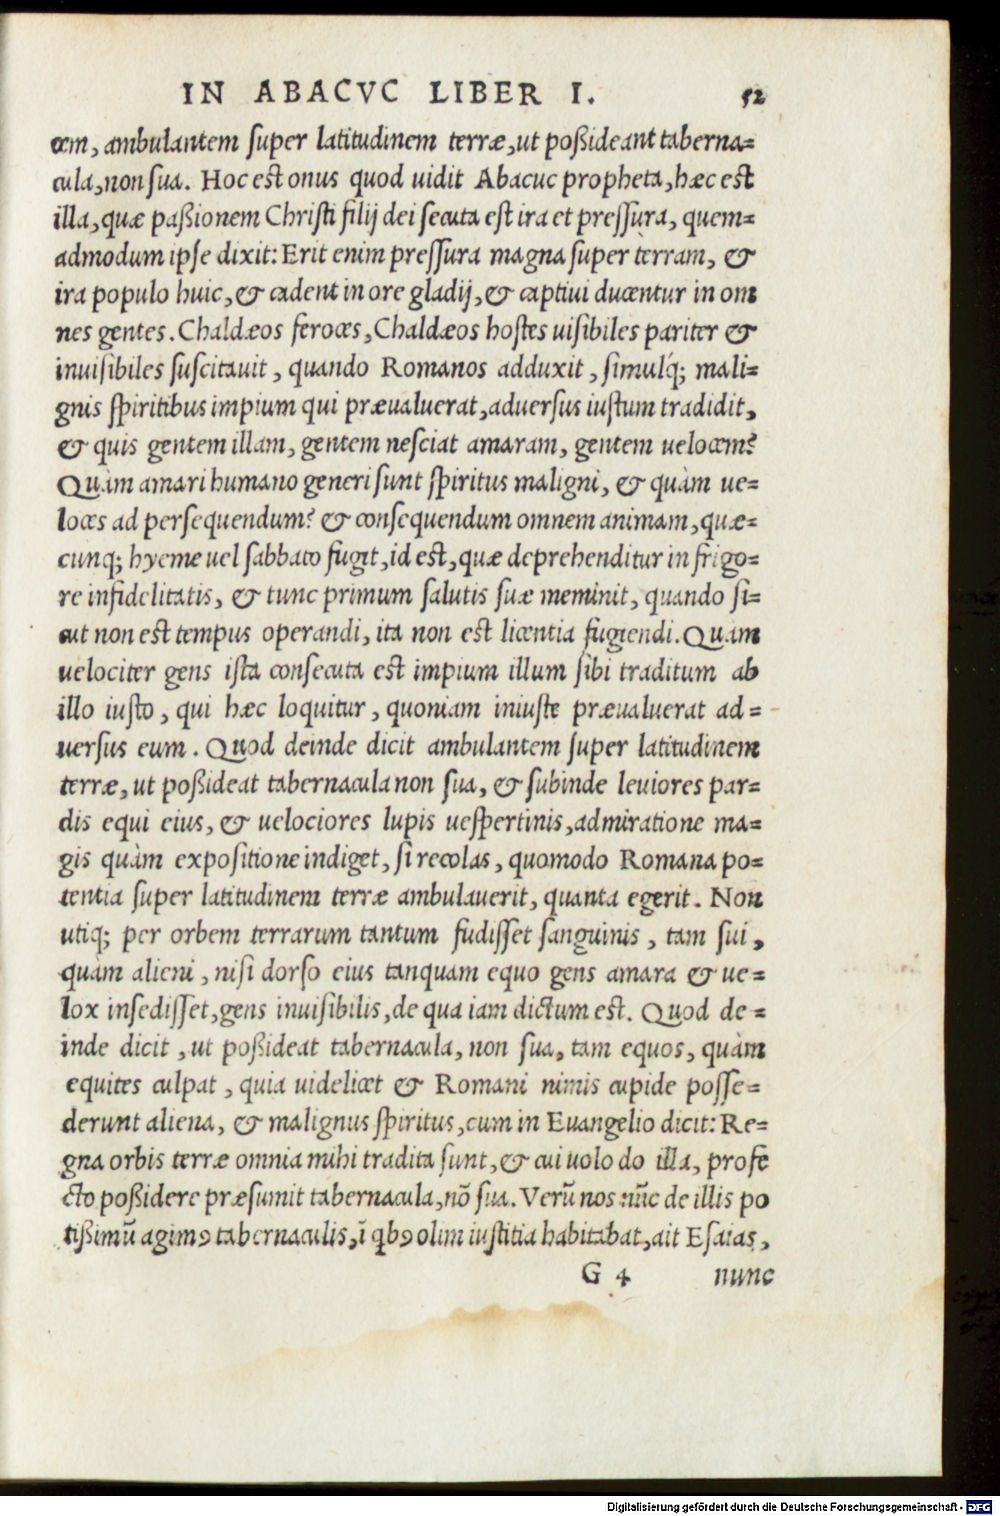 IN ABACVC LIBER I. 52
cem, ambulantem super latitudinem terræ, ut poßideant taberna=
cula, non sua. Hoc est onus quod uidit Abacuc propheta, hæc est
illa, quæ paßionem Christi filij dei secuta est ira et pressura, quem=
admodum ipse dixit: Erit enim pressura magna super terram, &
ira populo huic, & cadent in ore gladij, & captiui ducentur in om
nes gentes. Chaldæos feroces, Chaldæos hostes uisibiles pariter &
inuisibiles suscitauit, quando Romanos adduxit, simulq́; mali=
gnis spiritibus impium qui præualuerat, aduersus iustum tradidit,
& quis gentem illam, gentem nesciat amaram, gentem uelocem?
Quàm amari humano generi sunt spiritus maligni, & quàm ue=
loces ad persequendum? & consequendum omnem animam, quæ=
cunq; hyeme uel sabbato fugit, id est, quæ deprehenditur in frigo=
re infidelitatis, & tunc primum salutis suæ meminit, quando si=
cut non est tempus operandi, ita non est licentia fugiendi. Quàm
uelociter gens ista consecuta est impium illum sibi traditum ab
illo iusto, qui hæc loquitur, quoniam iniuste præualuerat ad=
uersus eum. Quod deinde dicit ambulantem super latitudinem
terræ, ut poßideat tabernacula non sua, & subinde leuiores par=
dis equi eius, & uelociores lupis uespertinis, admiratione ma=
gis quàm expositione indiget, si recolas, quomodo Romana po=
tentia super latitudinem terræ ambulauerit, quanta egerit. Non
utiq; per orbem terrarum tantum fudisset sanguinis, tam sui,
quàm alieni, nisi dorso eius tanquam equo gens amara & ue=
lox insedisset, gens inuisibilis, de qua iam dictum est. Quod de=
inde dicit, ut poßideat tabernacula, non sua, tam equos, quàm
equites culpat, quia uidelicet & Romani nimis cupide posse=
derunt aliena, & malignus spiritus, cum in Euangelio dicit: Re=
gna orbis terræ omnia mihi tradita sunt, & cui uolo do illa, profe
cto poßidere præsumit tabernacula, nõ sua. Verũ nos nũc de illis po
tißimũ agimꝰ tabernaculis, ĩ qbꝰ olim iustitia habitabat, ait Esaias,
G 4 nunc
Digitalisierung gefördert durch die Deutsche Forschungsgemeinschaft - DFG